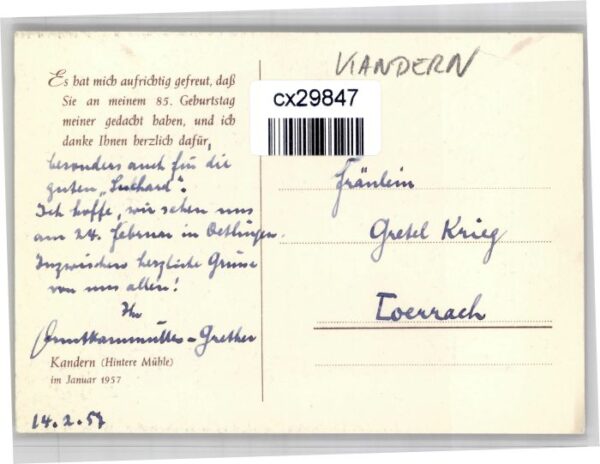 KANDERN
cx29847
Es hat mich aufrichtig gefreut, daß
Sie an meinem 85. Geburtstag
meiner gedacht haben, und ich
danke Ihnen herzlich dafür,
besonders auch für die
guten „Suchard“.
Ich hoffe, wir sehen uns
am 24. Februar in Oetlingen.
Inzwischen herzliche Grüsse
von uns allen!
Ihr
-Grether
Kandern (Hintere Mühle)
im Januar 1957
14.2.57
Fräulein
Gretel Krieg
Loerrach